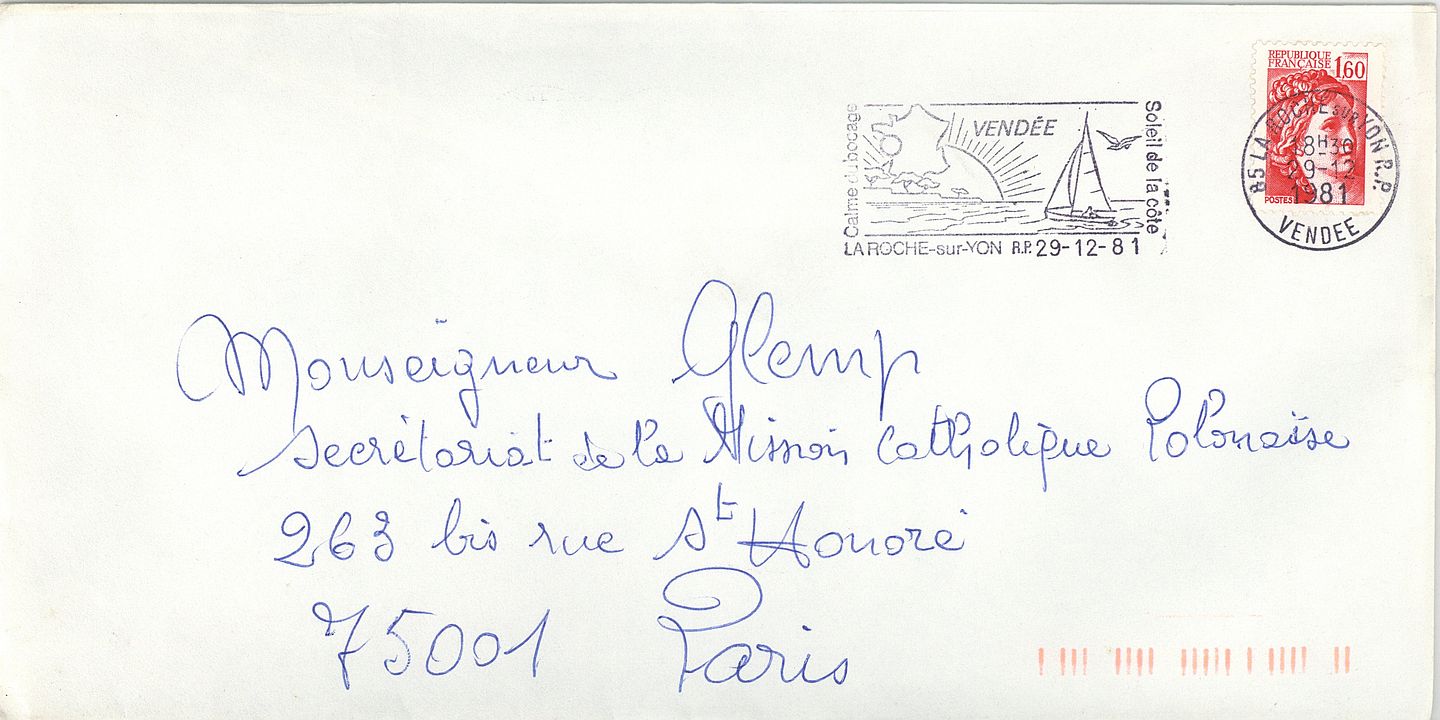 REPUBLIQUE
FRANÇAISE 1,60
POSTES
85 LA ROCHE SUR YON R.P.
18H30
29-12
1981
VENDEE
VENDÉE
Calme du bocage
Soleil de la côte
LA ROCHE-sur-YON R.P. 29-12-81
Monseigneur Glemp
Secrétariat de la Mission Catholique Polonaise
263 bis rue St Honoré
75001 Paris